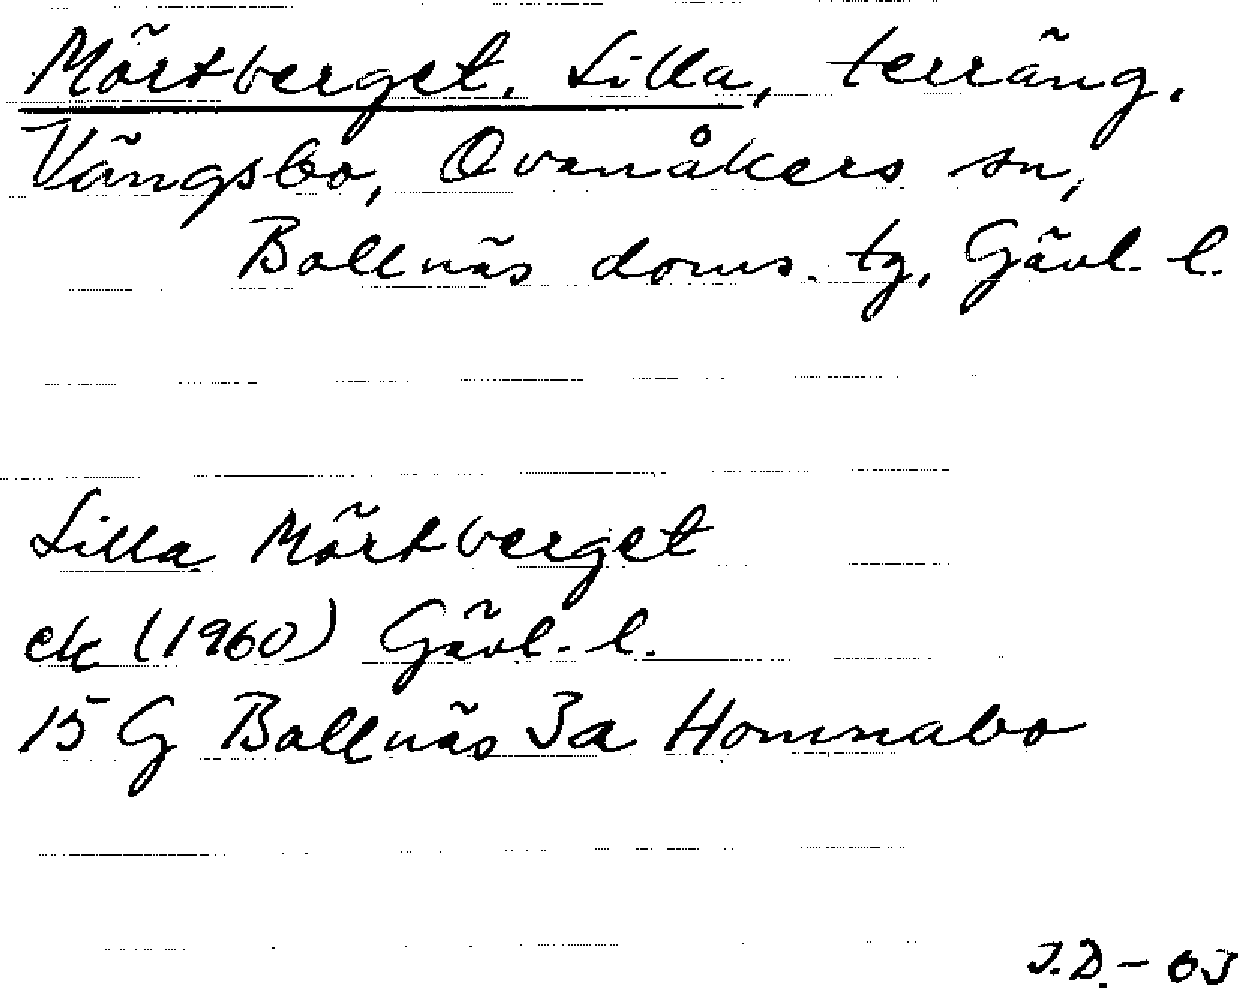 Mörtberget, Lilla, terräng.
Vängsbo, Ovanåkers sn,
Bollnäs doms. tg, Gävl. l.
Lilla Mörtberget
ek (1960) Gävl. l.
15 G Bollnäs 3a Homnabo
J.D. - 63